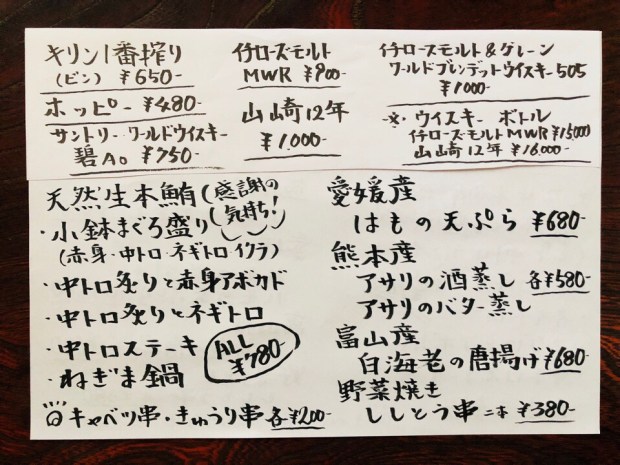 キリン1番搾り
(ビン) ¥650-
ホッピー ¥480-
サントリー・ワールドウイスキー
碧Ao ¥750-
イチローズモルト
MWR ¥900-
山崎12年
¥1,000-
イチローズモルト&グレーン
ワールドブレンデットウイスキー505
¥1000-
※・ウイスキー ボトル
イチローズモルトMWR¥15000
山崎12年 ¥16,000-
天然生本鮪(感謝の
気持ち!
・小鉢まぐろ盛り
(赤身・中トロ・ネギトロイクラ)
・中トロ炙りと赤身アボカド
・中トロ炙りとネギトロ
・中トロステーキ
・ねぎま鍋
ALL
¥780-
キャベツ串・きゅうり串 各¥200-
愛媛産
はもの天ぷら ¥680-
熊本産
アサリの酒蒸し 各¥580-
アサリのバター蒸し
富山産
白海老の唐揚げ¥680-
野菜焼き
ししとう串 二本 ¥380-